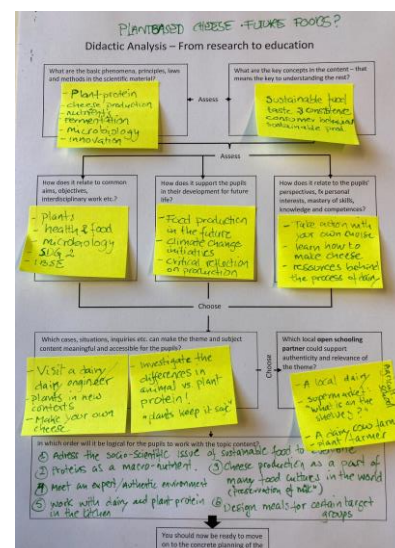 PLANTBASED CHEESE - FUTURE FOODS?
Didactic Analysis – From research to education
What are the basic phenomena, principles, laws
and methods in the scientific material?
- Plant protein
- cheese production
- nutrients
- fermentation
- microbiology
- innovation
Assess
What are the key concepts in the content – that
means the key to understanding the rest?
Sustainable food
taste & consistence
consumer behavior
sustainable prod.
Assess
How does it relate to common
aims, objectives,
interdisciplinary work etc.?
- plants
- health & food
microbiology
- SDG 2
- IBSE
How does it support the pupils
in their development for future
life?
- Food production
in the future
- climate change
initiatives
- critical reflection
on production
How does it relate to the pupils'
perspectives, fx personal
interests, mastery of skills,
knowledge and competences?
- Take action with
your own choise
- learn how to
make cheese
- resources behind
the process of
Choose
Which cases, situations, inquiries etc. can make the theme and subject
content meaningful and accessible for the pupils?
- Visit a dairy/
dairy engineer
- plants in new
contexts
- Make your own
cheese
- Investigate the
differences in
animal vs plant
protein!
"plants keep it
Choose
Which local open schooling
partner could support
authenticity and relevance of
the theme?
- A local dairy
- supermarket
"what is on the
shelves?"
- A dairy cow farm
- plant farmer
In which order will it be logical for the pupils to work with the topic content?
① Adress the socio-scientific issue of sustainable food to everyone
② Proteins as a macro-nutrient.
③ Cheese production as a part of
many food cultures in the world
(preservation of milk)
④ Meet an expert/authentic environment
⑤ work with dairy and plant protein
in the kitchen
⑥ Design meals for certain target
groups
You should now be ready to move
on to the concrete planning of the